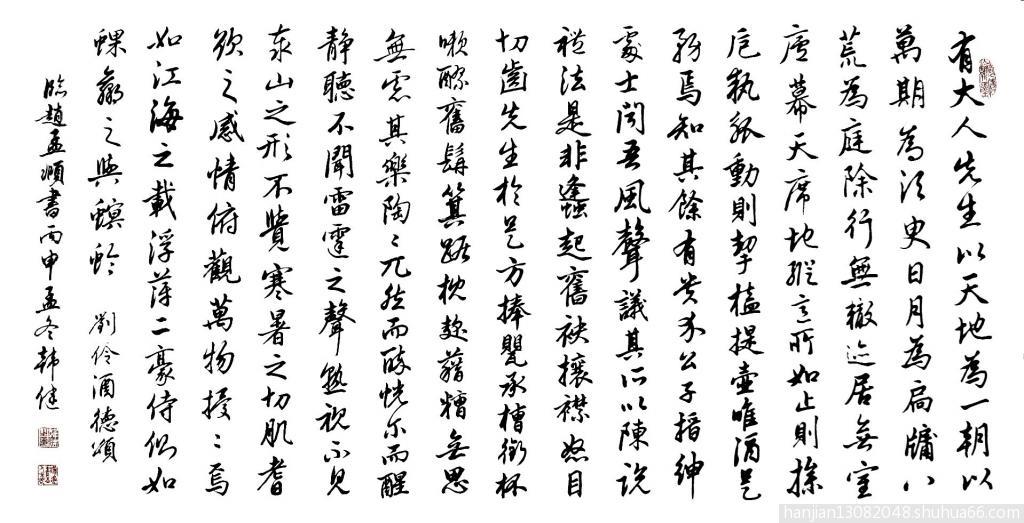 有大人先生以天地為一朝以
萬期為須臾日月為扃牖八
荒為庭除行無轍迹居無室
廬幕天席地縱意所如止則操
卮執觚動則挈榼提壺唯酒是
務焉知其餘有貴介公子搢紳
處士聞吾風聲議其所以陳說
禮法是非蠭起奮袂攘襟怒目
切齒先生於是方捧甖承槽銜杯
漱醪奮髯箕踞枕麴藉糟無思
無慮其樂陶〻兀然而醉恍尔而醒
静聽不聞雷霆之聲熟視不見
泰山之形不覺寒暑之切肌耆
欲之感情俯觀萬物擾〻焉
如江海之載浮萍二豪侍側如
蜾蠃之與螟蛉 劉伶酒德頌
臨趙孟頫書丙申孟冬韩健
hanjian13082048.shuhua66.com